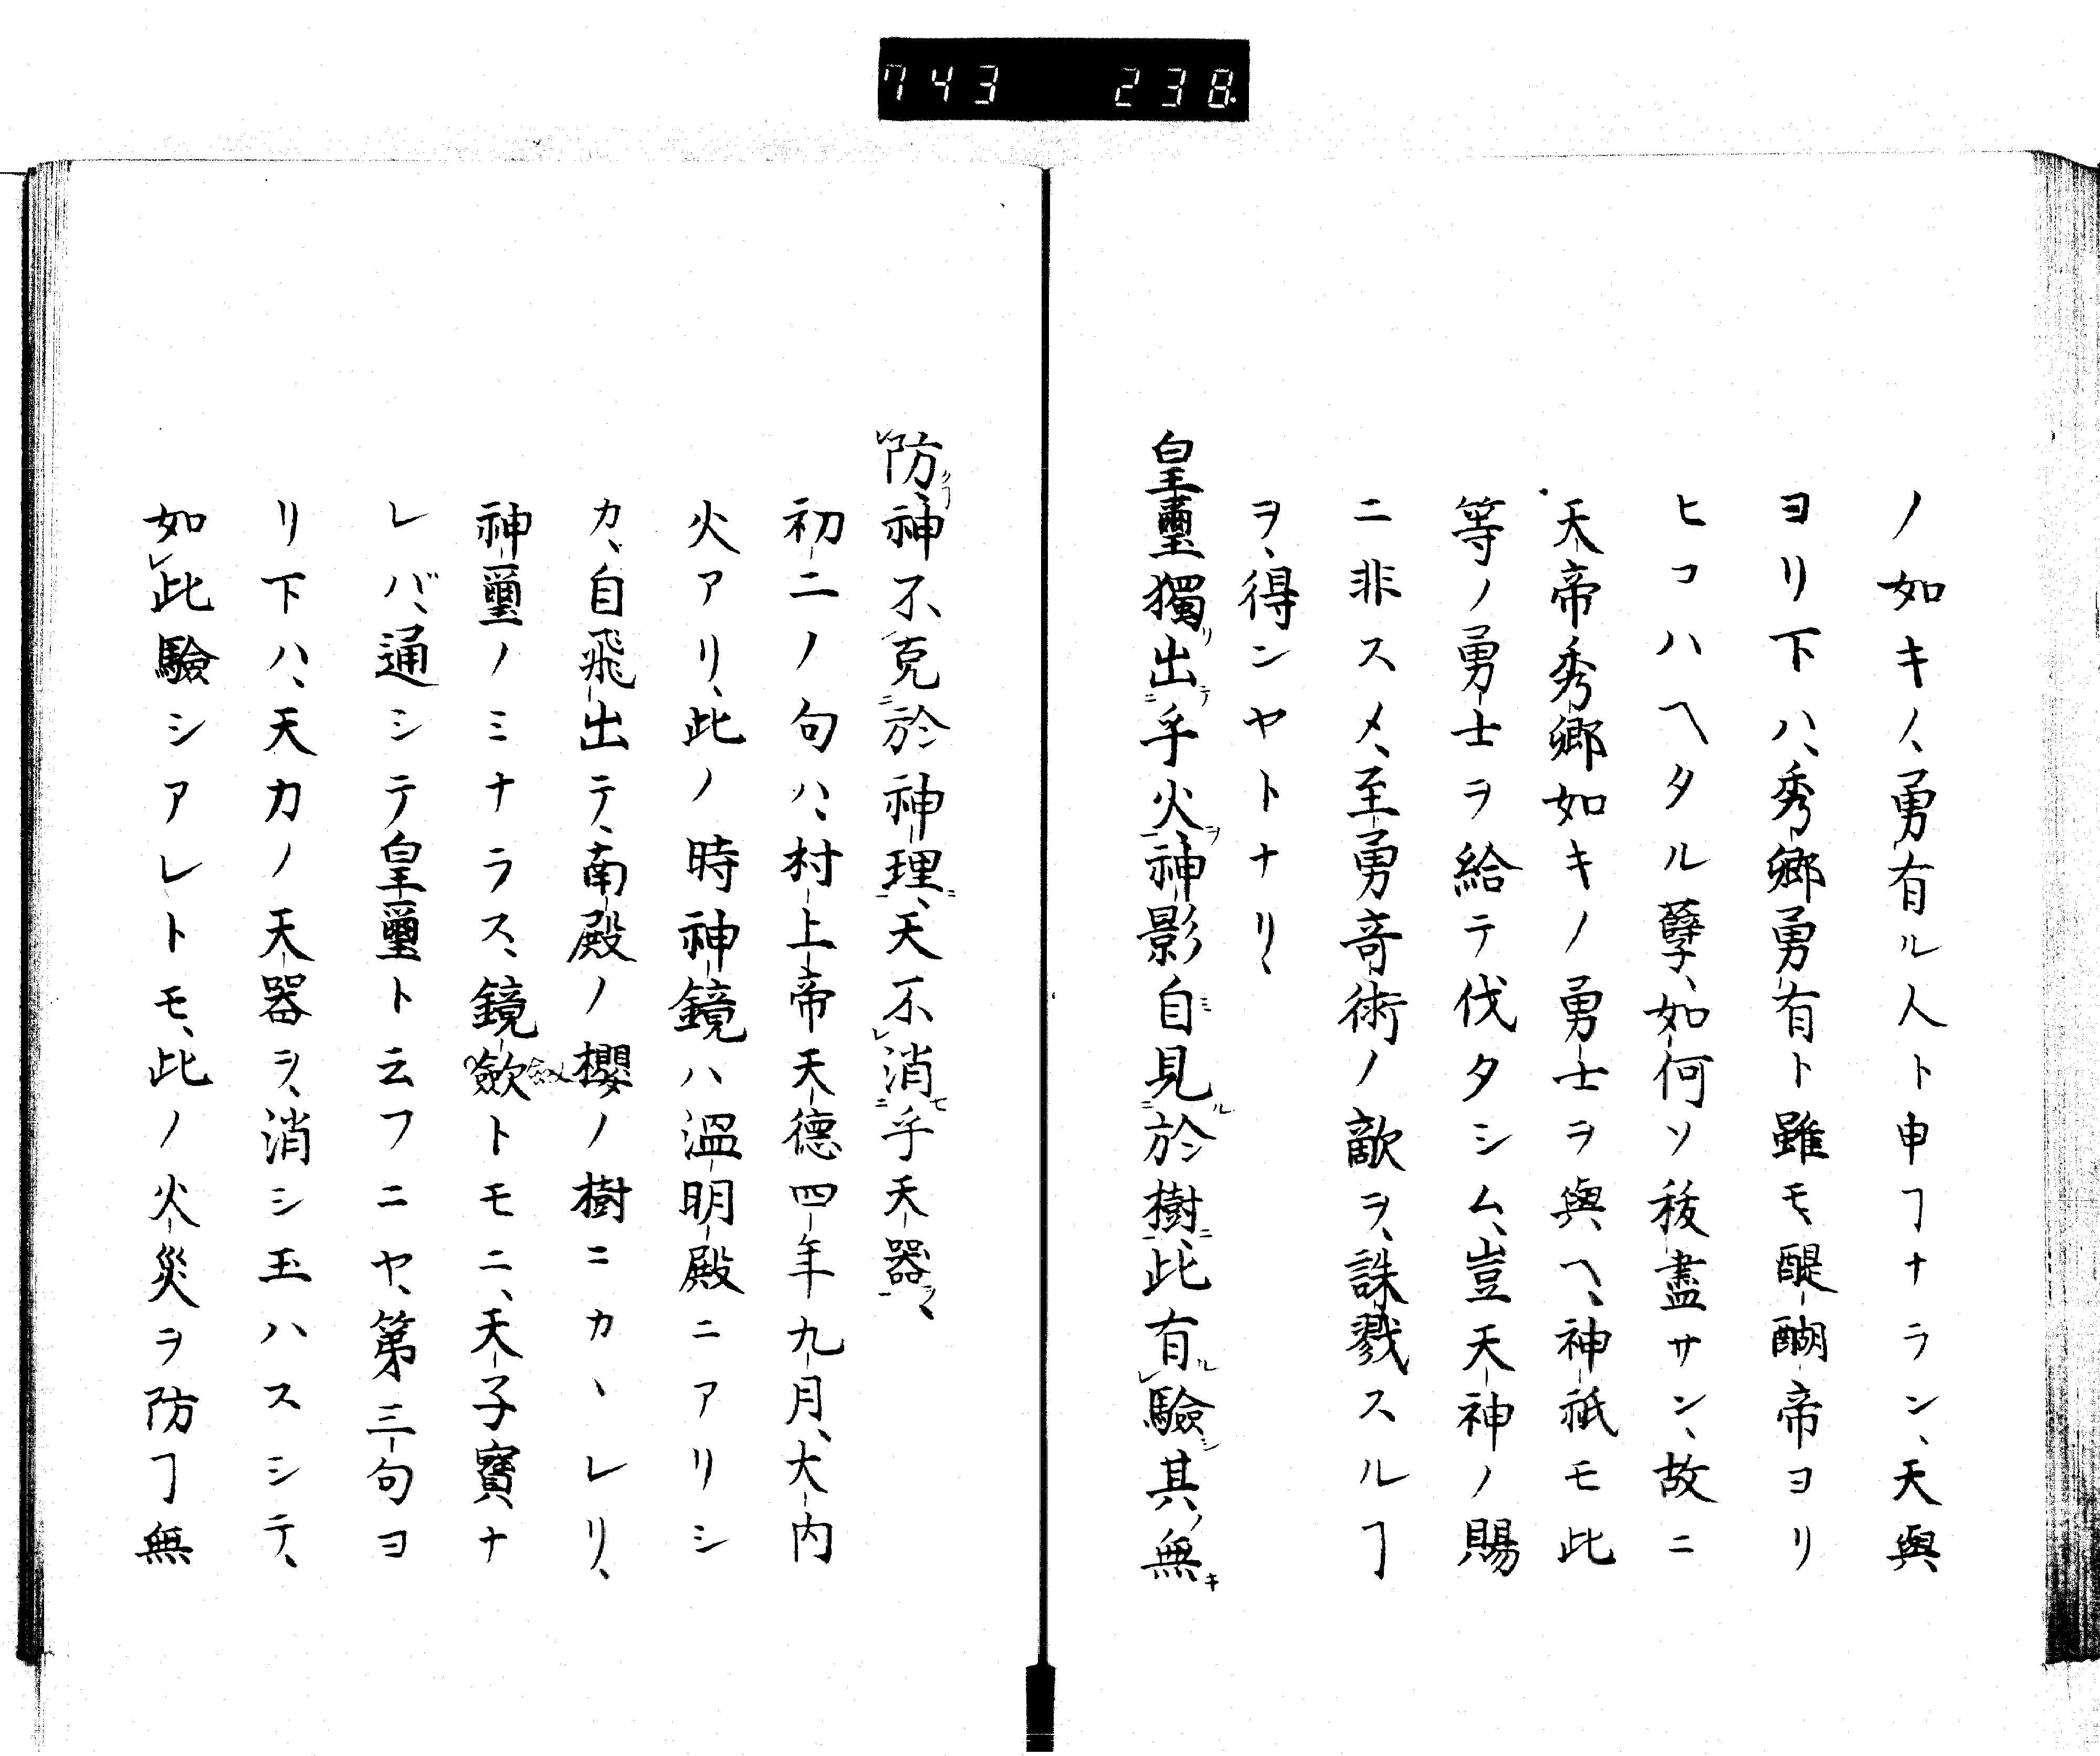 743 238
ノ如キノ、勇有ル人ト申ヿナラン、天與
ヨリ下ハ、秀郷勇有ト雖モ、醍醐帝ヨリ
ヒコハヘタル孽、如何ソ秡盡サン、故ニ
天帝秀郷如キノ勇士ヲ與ヘ、神祇モ此
等ノ勇士ヲ給テ伐タシム、豈天神ノ賜
ニ非スメ、至勇竒術ノ敵ヲ、誅戮スルヿ
ヲ、得ンヤトナリ、
皇璽獨リ出テ乎火ヲ神影自ミ見ル於樹ニ、此有ル驗シ其ノ無キ
防クヿ、神不克於神理ニ、天不消セ乎天器ノ、
初二ノ句ハ、村上帝天德四年九月、大内
火アリ、此ノ時神鏡ハ溫明殿ニアリシ
カ、自飛出テ、南殿ノ櫻ノ樹ニカヽレリ、
神璽ノミナラス、鏡歛トモニ、天子寶ナ
レバ、通シテ皇璽ト云フニヤ、第三句ヨ
リ下ハ、天カノ天器ヲ、消シ玉ハスシテ、
如此驗シアレトモ、此ノ火災ヲ防ヿ無